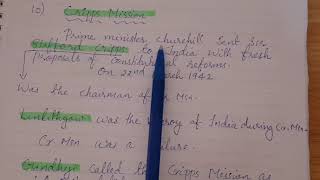 10) Cripps Mission
Prime minister, churchill Sent Sir
Stafford Cripps to India With fresh
proposals of Constitutional reforms.
On 22nd March 1942
Was the chairman of Cr. Msn.
Linlithgow was the Viceroy of India during Cr. Msn.
Cr. Msn was a failure.
Gandhiji called the Cripps Mission as